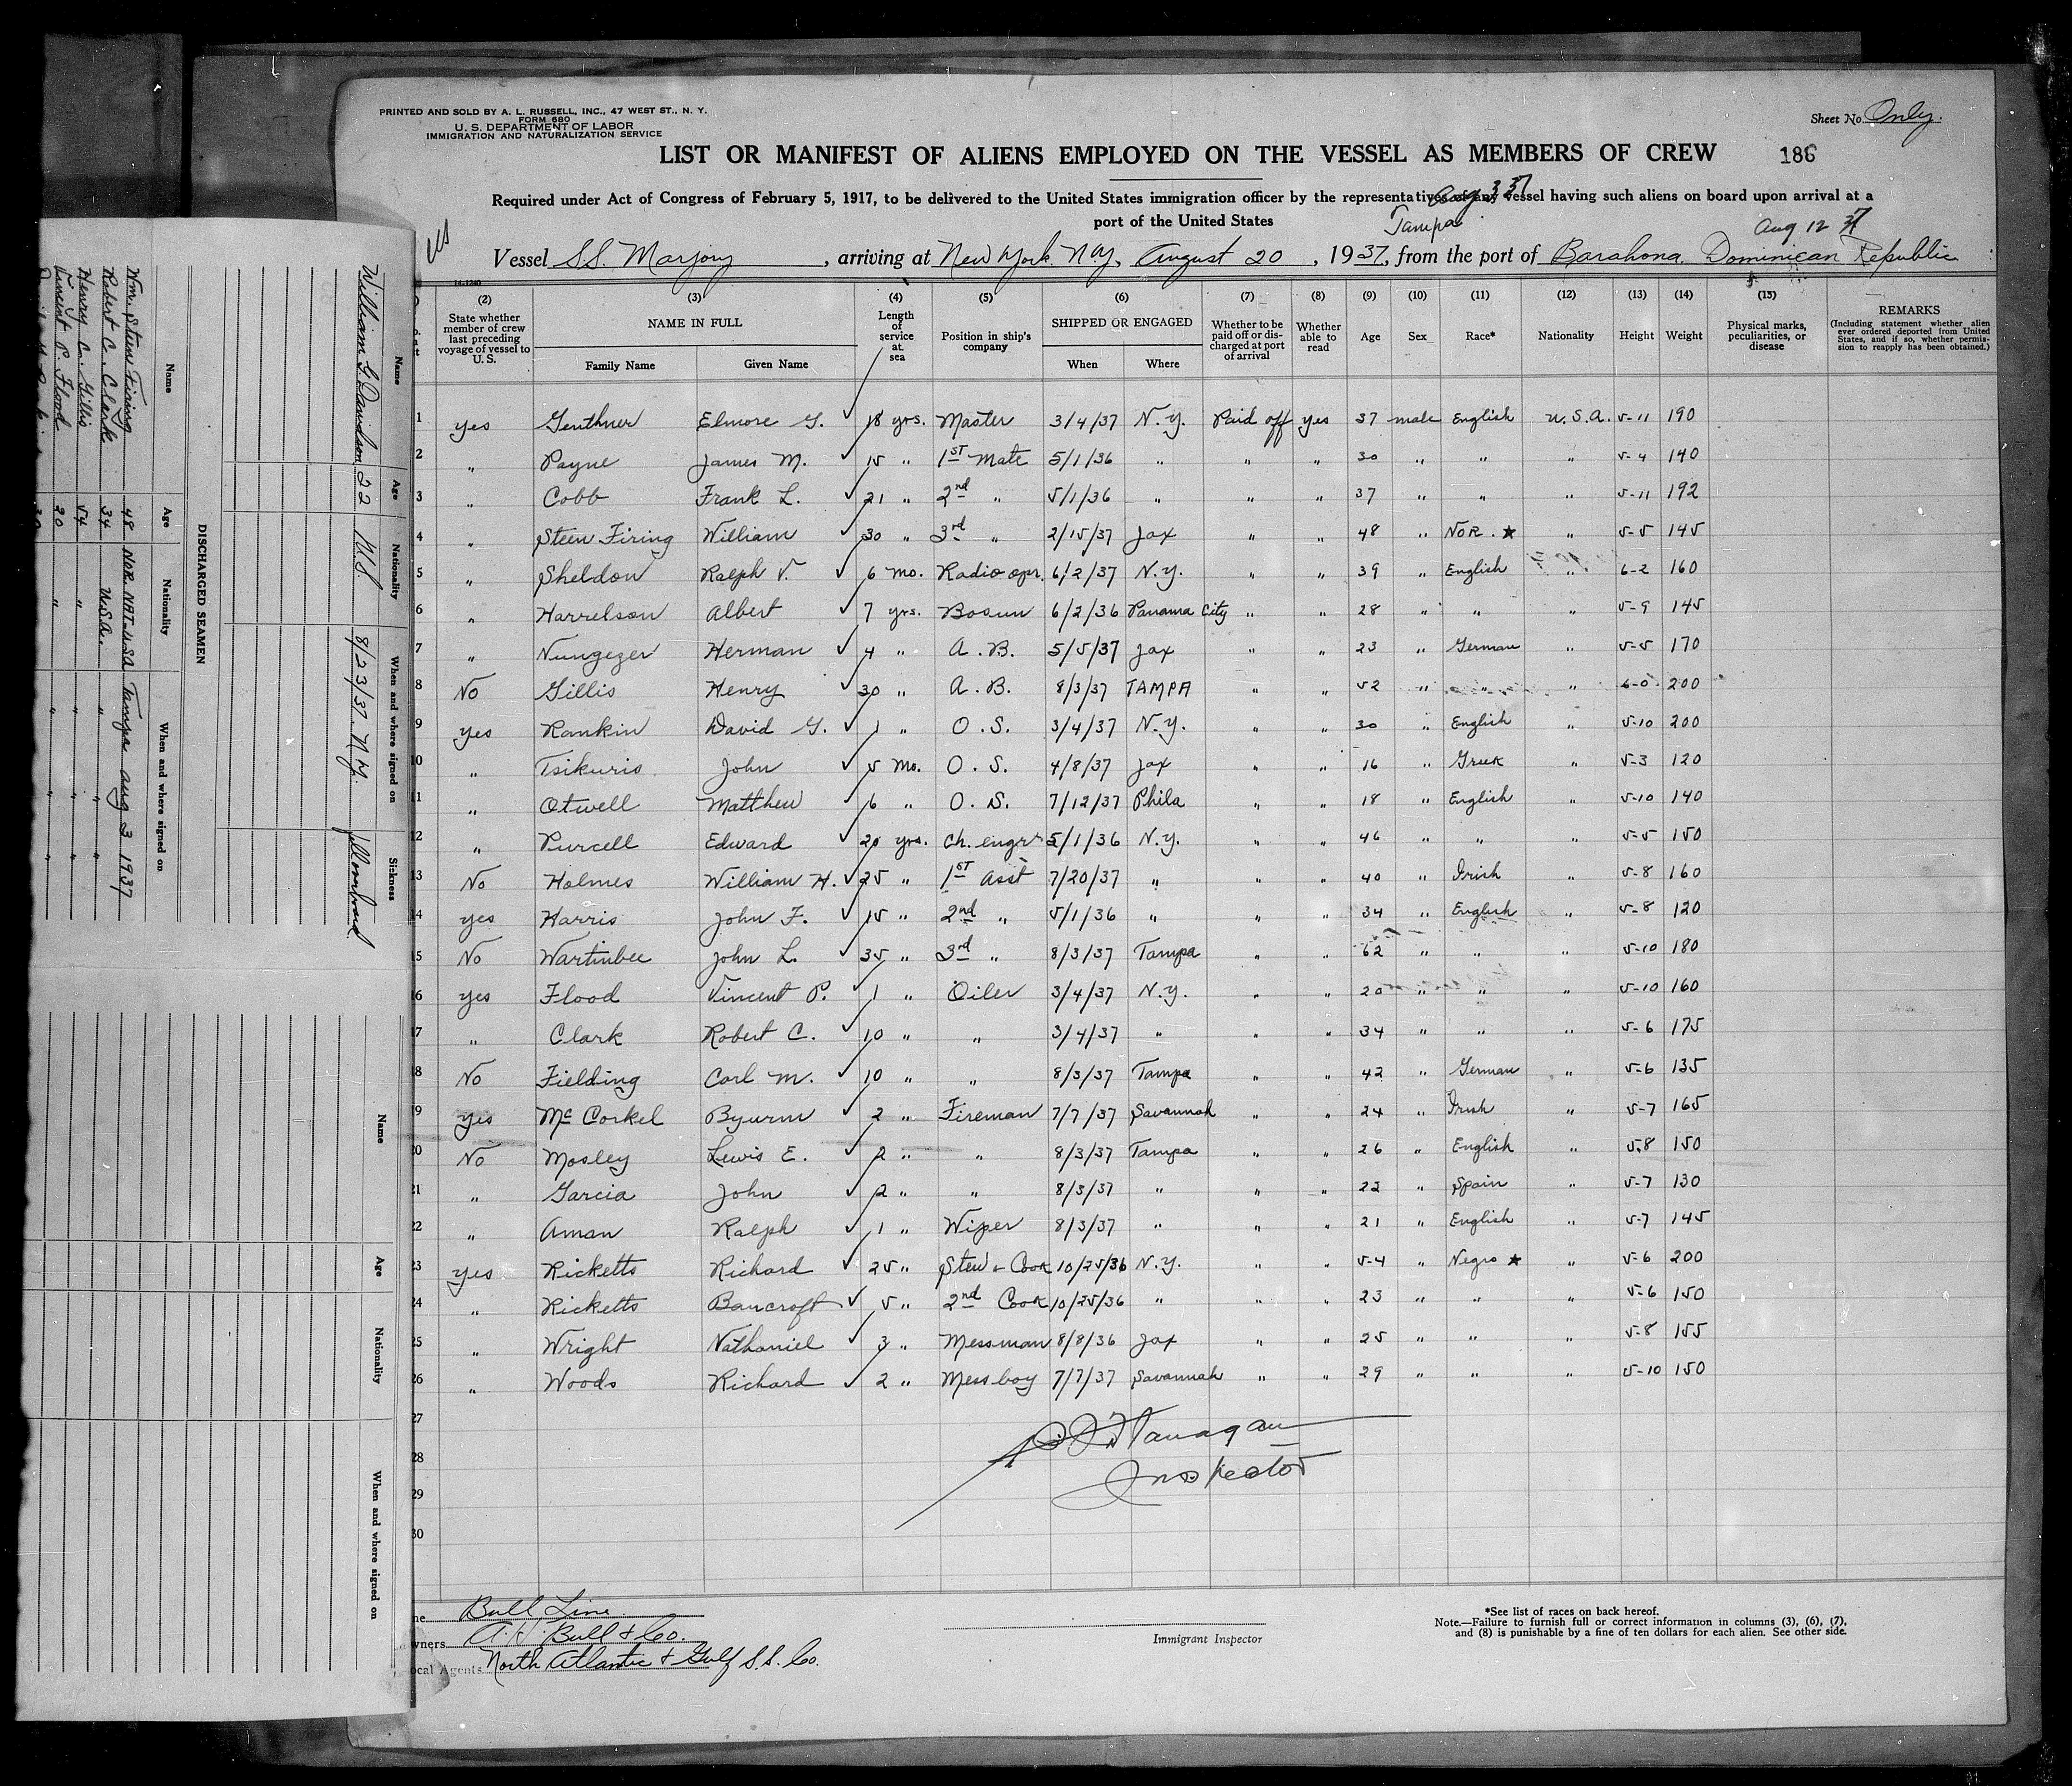 PRINTED AND SOLD BY A. L. RUSSELL, INC., 47 WEST ST., N. Y.
FORM 680
U. S. DEPARTMENT OF LABOR
IMMIGRATION AND NATURALIZATION SERVICE
Sheet No. Only.
LIST OR MANIFEST OF ALIENS EMPLOYED ON THE VESSEL AS MEMBERS OF CREW 186
Required under Act of Congress of February 5, 1917, to be delivered to the United States immigration officer by the representatives of any vessel having such aliens on board upon arrival at a
port of the United States
Aug 3 37
Tampa
Aug 12 37
Vessel S.S. Marjory, arriving at New York N.Y., August 20, 1937, from the port of Barahona Dominican Republic
(2) (3) (4) (5) (6) (7) (8) (9) (10) (11) (12) (13) (14) (15)
State whether member of crew last preceding voyage of vessel to U.S.
NAME IN FULL
Family Name Given Name
Length of service at sea
Position in ship's company
SHIPPED OR ENGAGED
When Where
Whether to be paid off or discharged at port of arrival
Whether able to read
Age Sex Race* Nationality Height Weight
Physical marks, peculiarities, or disease
REMARKS
(Including statement whether alien ever ordered deported from United States, and if so, whether permission to reapply has been obtained.)
1 yes Genthner Elmore G. 18 yrs. Master 3/4/37 N.Y. Paid off yes 37 male English U.S.A. 5-11 190
2 " Payne James M. 15 " 1st Mate 5/1/36 " " " 30 " " " 5-4 140
3 " Cobb Frank L. 21 " 2nd " 5/1/36 " " " 37 " " " 5-11 192
4 " Steen Firing William 30 " 3rd " 2/15/37 Jax " " 48 " NOR. ★ 5-5 145
5 " Sheldon Ralph V. 6 mo. Radio opr. 6/2/37 N.Y. " " 39 " English " 6-2 160
6 " Harrelson Albert 7 yrs. Bosun 6/2/36 Panama City " " 28 " " " 5-9 145
7 " Nungezer Herman 4 " A.B. 5/5/37 Jax " " 23 " German " 5-5 170
8 No Gillis Henry 30 " A.B. 8/3/37 TAMPA " " 52 " " " 6-0 200
9 yes Rankin David G. 1 " O.S. 3/4/37 N.Y. " " 30 " English " 5-10 200
10 " Tsikuris John 5 mo. O.S. 4/8/37 Jax " " 16 " Greek " 5-3 120
11 " Otwell Matthew 6 " O.S. 7/12/37 Phila " " 18 " English " 5-10 140
12 " Purcell Edward 20 yrs. Ch. engr 5/1/36 N.Y. " " 46 " " " 5-5 150
13 No Holmes William H. 25 " 1st Asst 7/20/37 " " " 40 " Irish " 5-8 160
14 yes Harris John F. 15 " 2nd " 5/1/36 " " " 34 " English " 5-8 120
15 No Wartinbee John L. 35 " 3rd " 8/3/37 Tampa " " 62 " " " 5-10 180
16 yes Flood Vincent P. 1 " Oiler 3/4/37 N.Y. " " 20 " " 5-10 160
17 " Clark Robert C. 10 " " 3/4/37 " " " 34 " " " 5-6 175
18 No Fielding Carl M. 10 " " 8/3/37 Tampa " " 42 " German " 5-6 135
19 yes McCorkel Byurm 2 " Fireman 7/7/37 Savannah " " 24 " Irish " 5-7 165
20 No Mosley Lewis E. 2 " " 8/3/37 Tampa " " 26 " English " 5-8 150
21 " Garcia John 2 " " 8/3/37 " " " 22 " Spain " 5-7 130
22 " Aman Ralph 1 " Wiper 8/3/37 " " " 21 " English " 5-7 145
23 yes Ricketts Richard 25 " Stew & Cook 10/25/36 N.Y. " " 54 " Negro ★ " 5-6 200
24 " Ricketts Bancroft 5 " 2nd Cook 10/25/36 " " " 23 " " " 5-6 150
25 " Wright Nathaniel 3 " Messman 8/8/36 Jax " " 25 " " " 5-8 155
26 " Woods Richard 2 " Messboy 7/7/37 Savannah " " 29 " " " 5-10 150
27
28
29
30
Flanagan
Inspector
Bull Line
owners A. H. Bull & Co.
ocal Agents North Atlantic & Gulf S.S. Co.
Immigrant Inspector
*See list of races on back hereof.
Note.—Failure to furnish full or correct information in columns (3), (6), (7),
and (8) is punishable by a fine of ten dollars for each alien. See other side.
Name Age Nationality When and where signed on Sickness
William G. Davidson 22 U.S. 8/23/37 N.Y.
DISCHARGED SEAMEN
Name Age Nationality When and where signed on
Wm. Steen Firing 48 NOR. NAT-USA Tampa Aug 3 1937
Robert C. Clark 34 U.S.A. " "
Henry C. Gillis 54 " " "
Vincent P. Flood 20 " " "
Name Age Nationality When and where signed on